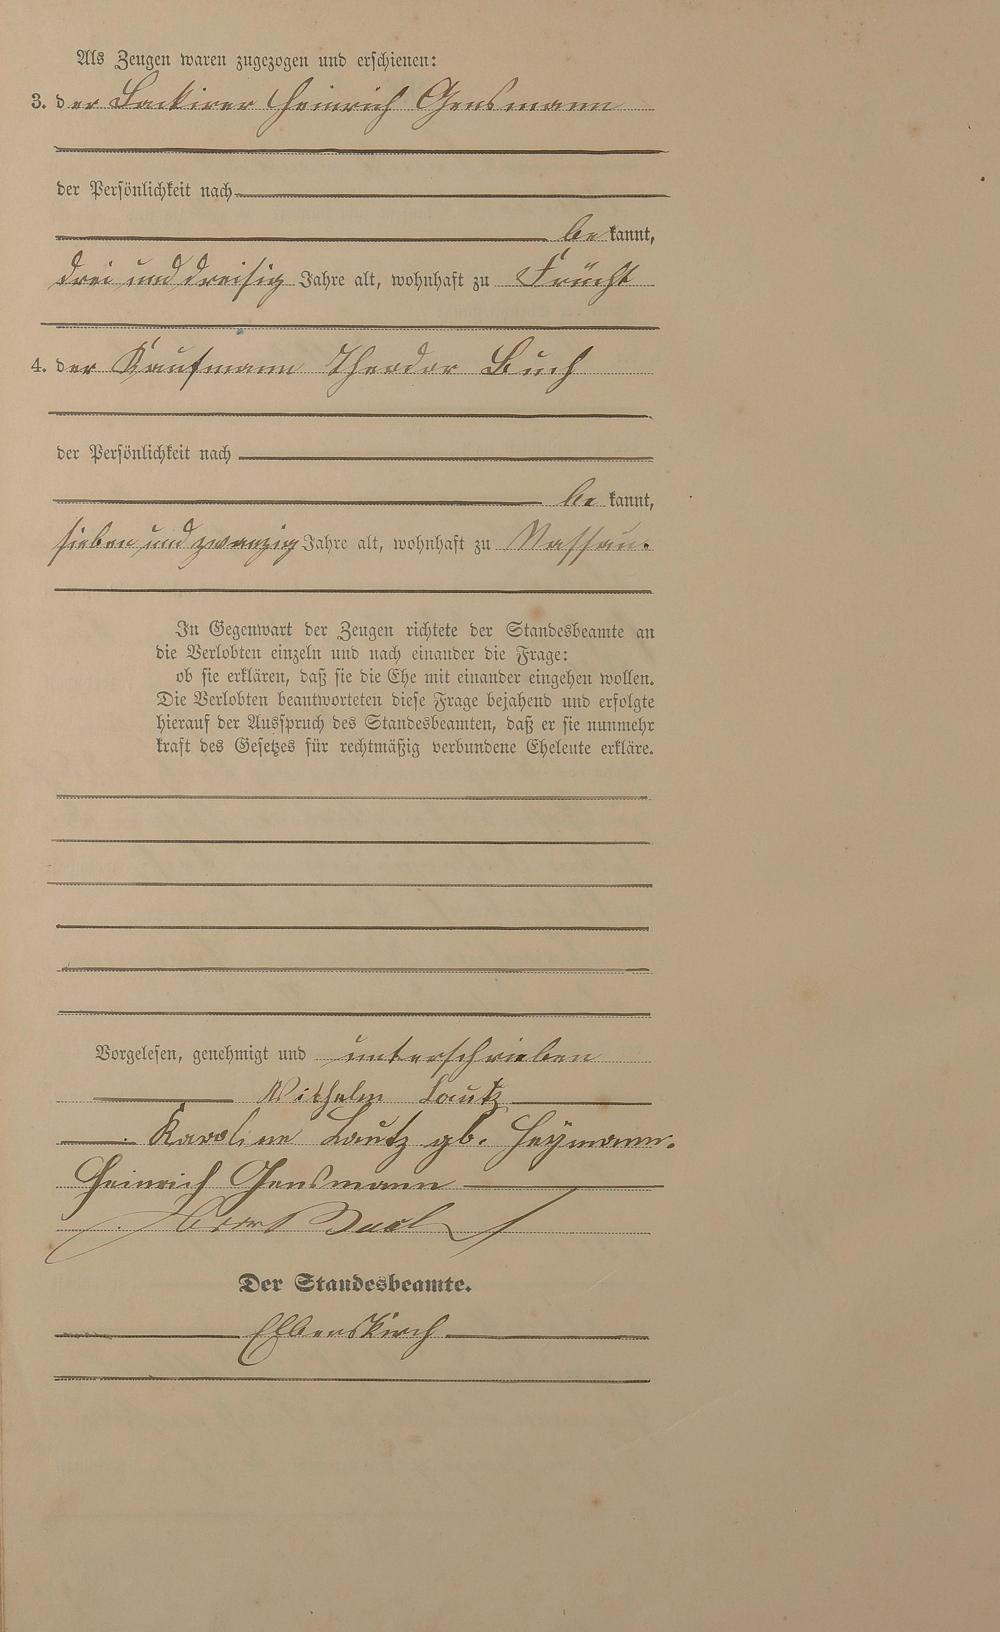 Als Zeugen waren zugezogen und erschienen:
3. der Lackirer Heinrich Gensmann
der Persönlichkeit nach
bekannt,
drei und dreisig Jahre alt, wohnhaft zu Frücht
4. der Kaufmann Theodor Buch
der Persönlichkeit nach
bekannt,
sieben und zwanzig Jahre alt, wohnhaft zu Nassau.
In Gegenwart der Zeugen richtete der Standesbeamte an
die Verlobten einzeln und nach einander die Frage:
ob sie erklären, daß sie die Ehe mit einander eingehen wollen.
Die Verlobten beantworteten diese Frage bejahend und erfolgte
hierauf der Ausspruch des Standesbeamten, daß er sie nunmehr
kraft des Gesetzes für rechtmäßig verbundene Eheleute erkläre.
Vorgelesen, genehmigt und unterschrieben
Wilhelm Lautz
Karoline Lautz gb. Heymann.
Heinrich Gensmann
Buch
Der Standesbeamte.
Elbenskirch